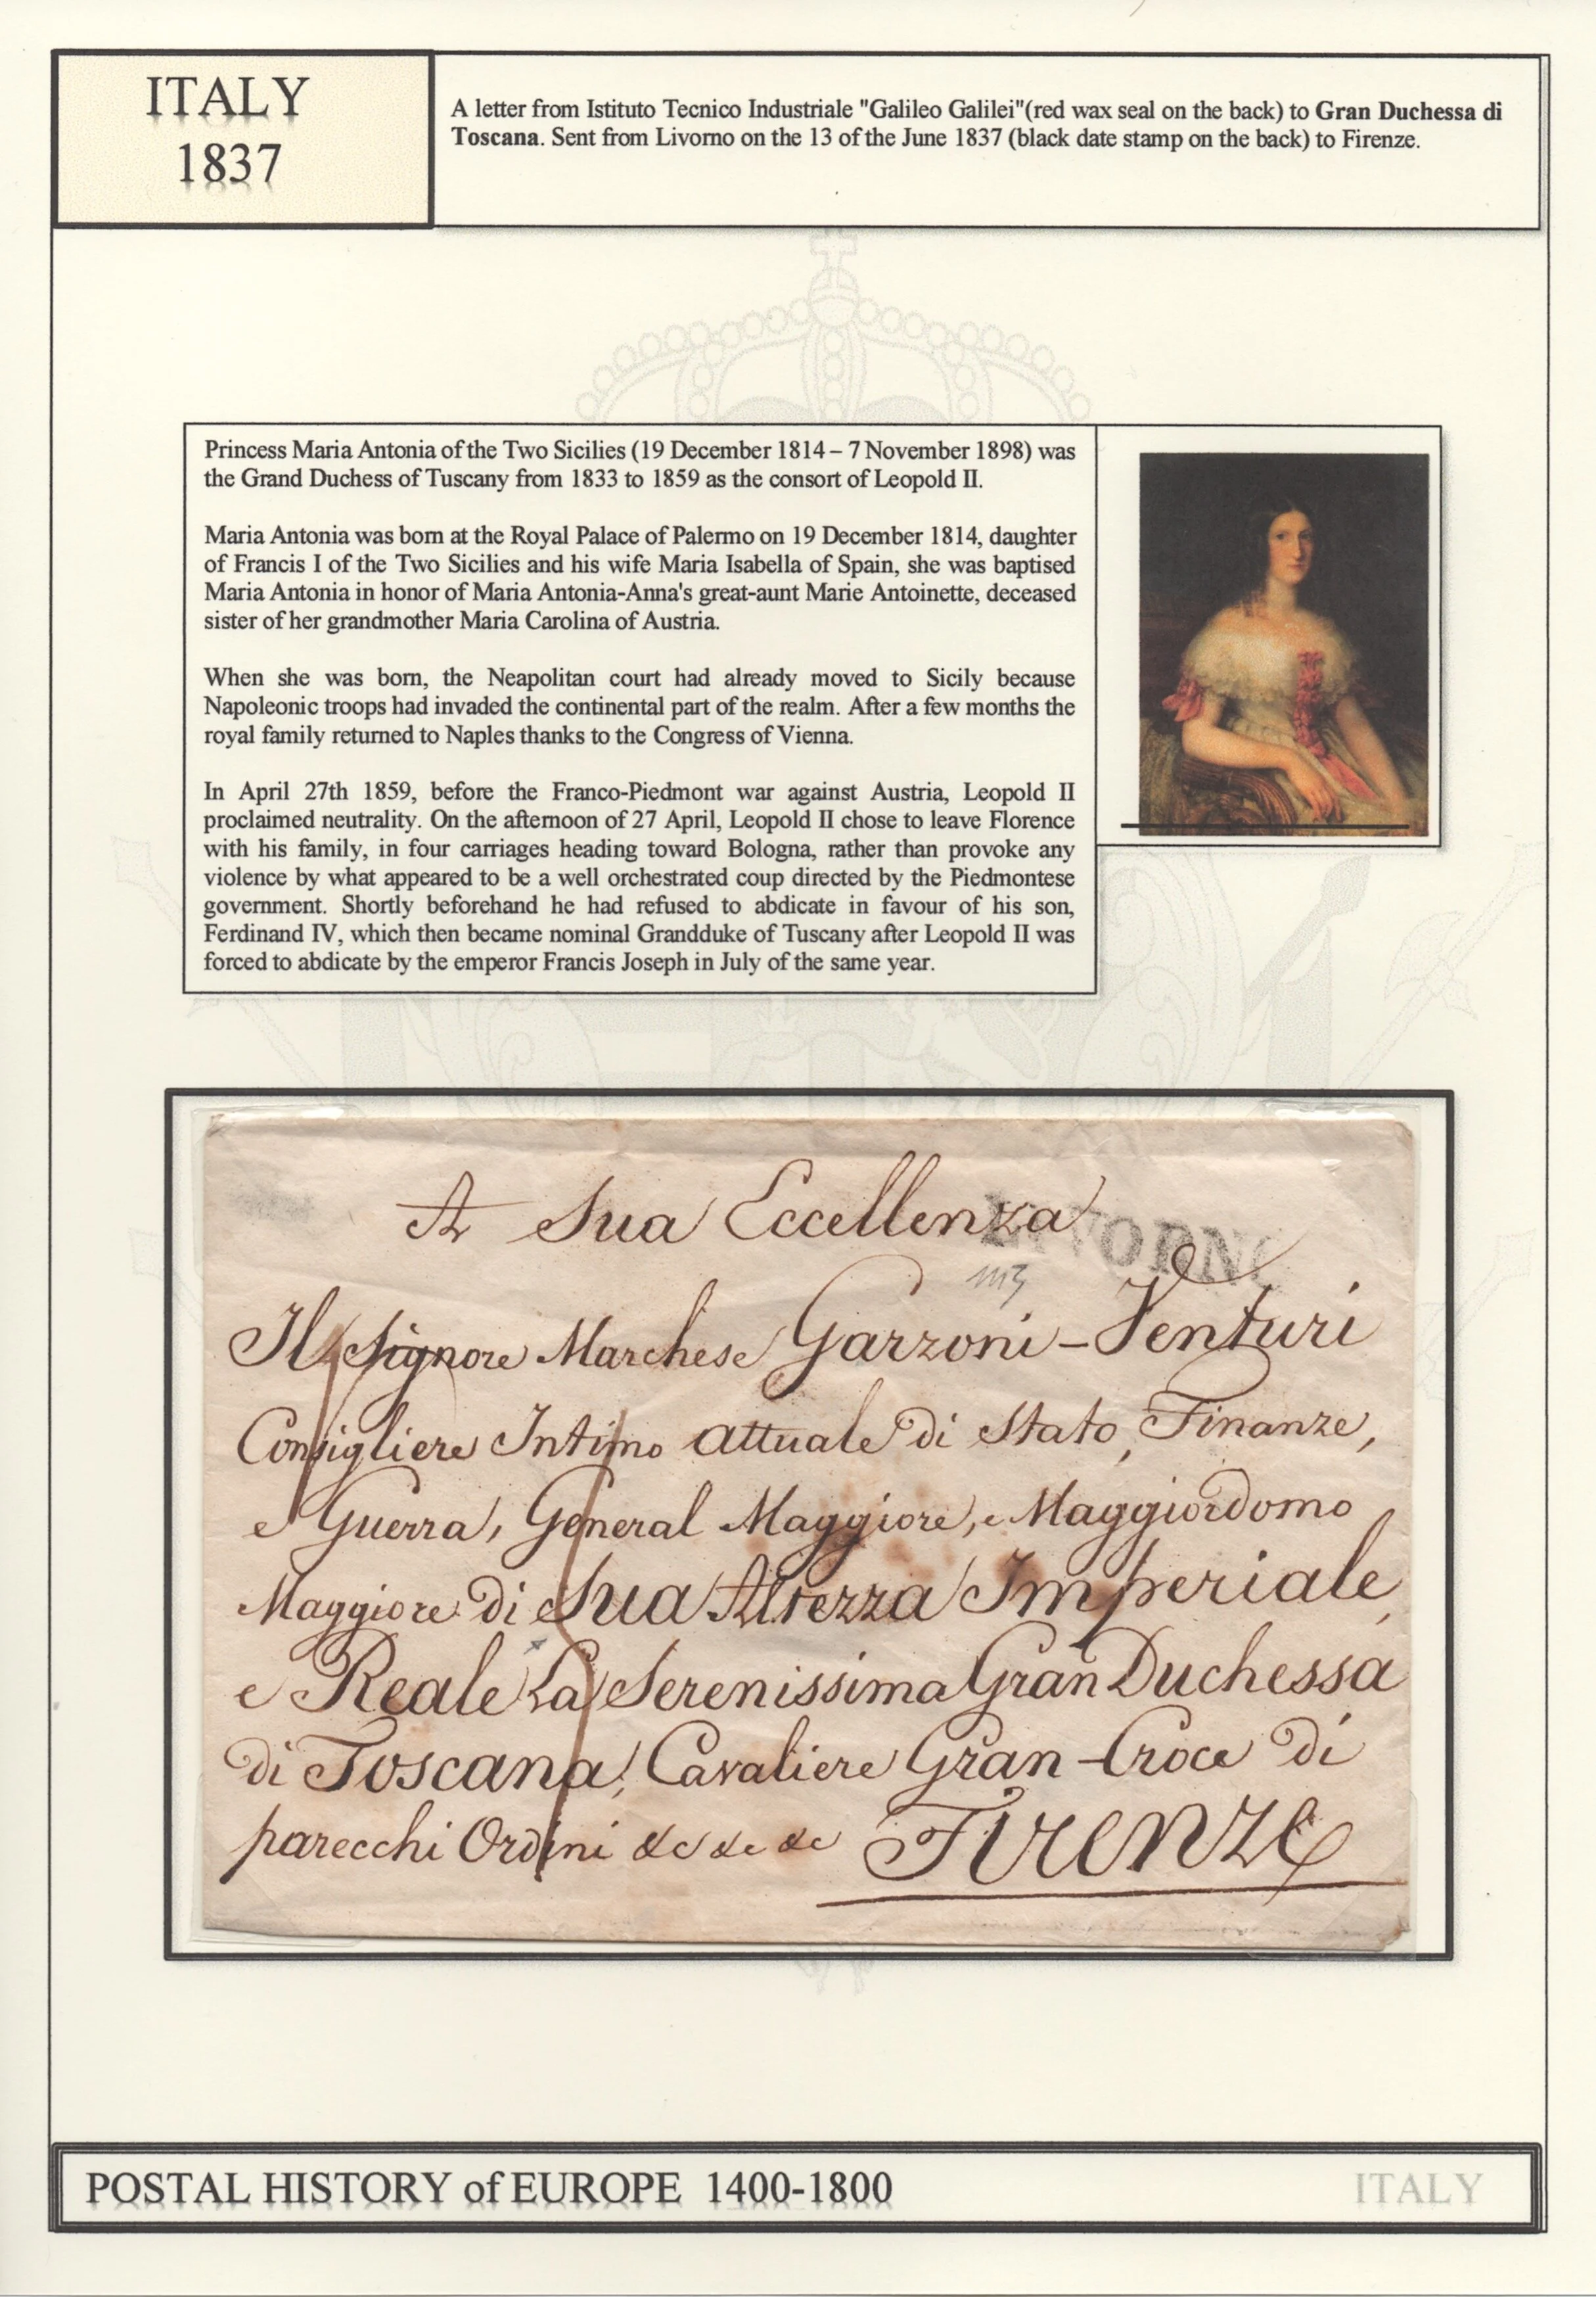 ITALY
1837
A letter from Istituto Tecnico Industriale "Galileo Galilei"(red wax seal on the back) to Gran Duchessa di
Toscana. Sent from Livorno on the 13 of the June 1837 (black date stamp on the back) to Firenze.
Princess Maria Antonia of the Two Sicilies (19 December 1814 – 7 November 1898) was
the Grand Duchess of Tuscany from 1833 to 1859 as the consort of Leopold II.
Maria Antonia was born at the Royal Palace of Palermo on 19 December 1814, daughter
of Francis I of the Two Sicilies and his wife Maria Isabella of Spain, she was baptised
Maria Antonia in honor of Maria Antonia-Anna's great-aunt Marie Antoinette, deceased
sister of her grandmother Maria Carolina of Austria.
When she was born, the Neapolitan court had already moved to Sicily because
Napoleonic troops had invaded the continental part of the realm. After a few months the
royal family returned to Naples thanks to the Congress of Vienna.
In April 27th 1859, before the Franco-Piedmont war against Austria, Leopold II
proclaimed neutrality. On the afternoon of 27 April, Leopold II chose to leave Florence
with his family, in four carriages heading toward Bologna, rather than provoke any
violence by what appeared to be a well orchestrated coup directed by the Piedmontese
government. Shortly beforehand he had refused to abdicate in favour of his son,
Ferdinand IV, which then became nominal Grandduke of Tuscany after Leopold II was
forced to abdicate by the emperor Francis Joseph in July of the same year.
A Sua Eccellenza
LIVORNO
Il Signore Marchese Garzoni-Venturi
Consigliere Intimo Attuale di Stato, Finanze,
e Guerra, General Maggiore, e Maggiordomo
Maggiore di Sua Altezza Imperiale
e Reale La Serenissima Gran Duchessa
di Toscana, Cavaliere Gran-Croce di
parecchi Ordini &c &c &c Firenze
POSTAL HISTORY of EUROPE 1400-1800
ITALY